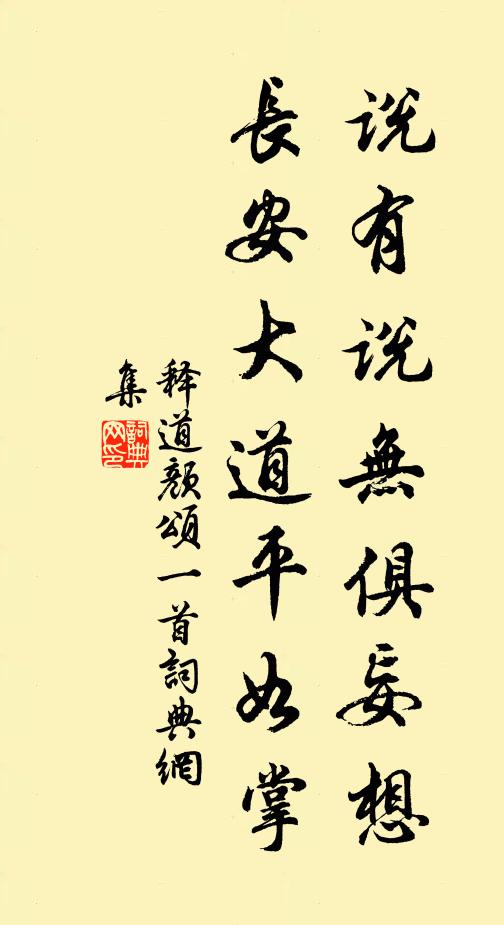 説有説無俱妄想
長安大道平如掌
释道顏頌一首詞典網
集
詞典網印